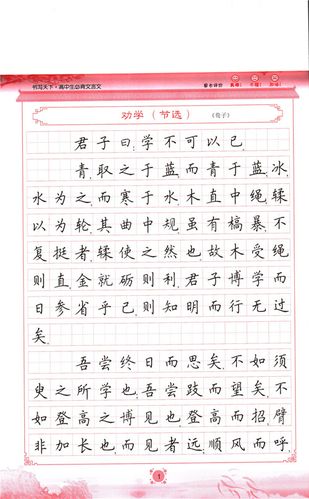 书写天下·高中生必背文言文
劝学（节选）
《荀子》
君子曰:学不可以已.
青,取之于蓝,而青于蓝,冰,
水为之,而寒于水.木直中绳,𫐓
以为轮,其曲中规.虽有槁暴,不
复挺者,𫐓使之然也.故木受绳
则直,金就砺则利,君子博学而
日参省乎己,则知明而行无过
矣.
吾尝终日而思矣,不如须
臾之所学也,吾尝跂而望矣,不
如登高之博见也.登高而招,臂
非加长也,而见者远;顺风而呼,
1